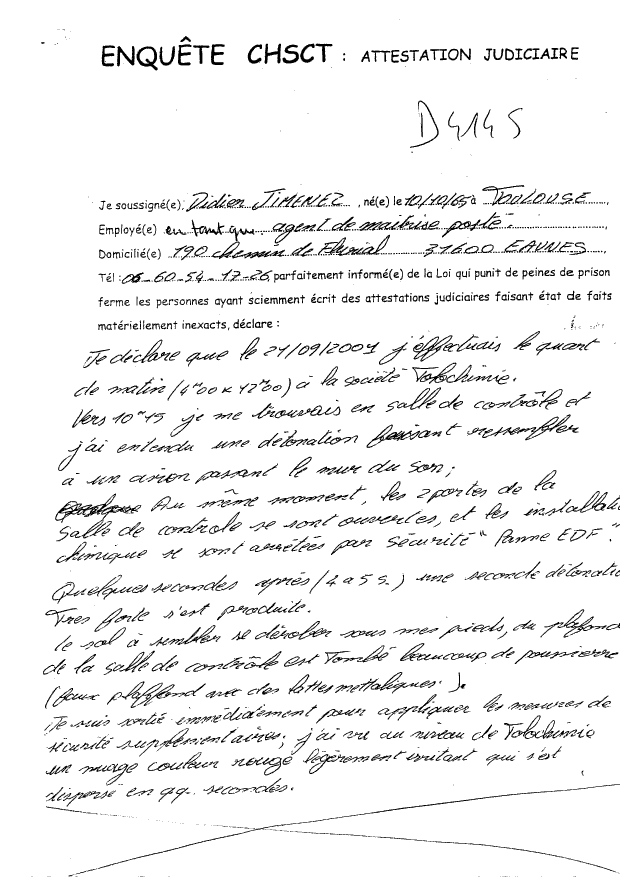 ENQUÊTE CHSCT : ATTESTATION JUDICIAIRE
D4145
Je soussigné(e) Didier JIMENEZ, né(e) le 10/10/65 à TOULOUSE
Employé(e) en tant que agent de maîtrise posté.
Domicilié(e) 190 chemin de 31600 EAUNES
Tél : 06-60-54-17-26 parfaitement informé(e) de la Loi qui punit de peines de prison
ferme les personnes ayant sciemment écrit des attestations judiciaires faisant état de faits
matériellement inexacts, déclare :
Je déclare que le 21/09/2001 j'effectuais le quart
de matin (4h00 x 12h00) à la société Tolochimie.
Vers 10h15 je me trouvais en salle de contrôle et
j'ai entendu une détonation faisant ressembler
à un avion passant le mur du son;
Au même moment, les 2 portes de la
salle de controle se sont ouvertes, et les installati
chimique se sont arrêtées par sécurité "Panne EDF".
Quelques secondes après (4 a 5 s.) une seconde détonati
Tres forte s'est produite.
le sol à sembler se dérober sous mes pieds, du plafond
de la salle de contrôle est Tombé beaucoup de poussière
(faux plaffond avec des lattes mettaliques.).
Je suis sortie immédiatement pour appliquer les mesures de
sécurité supplémentaires; j'ai vu au niveau de Tolochimie
un nuage couleur rouge légèrement irritant qui s'est
dispersé en qq. secondes.